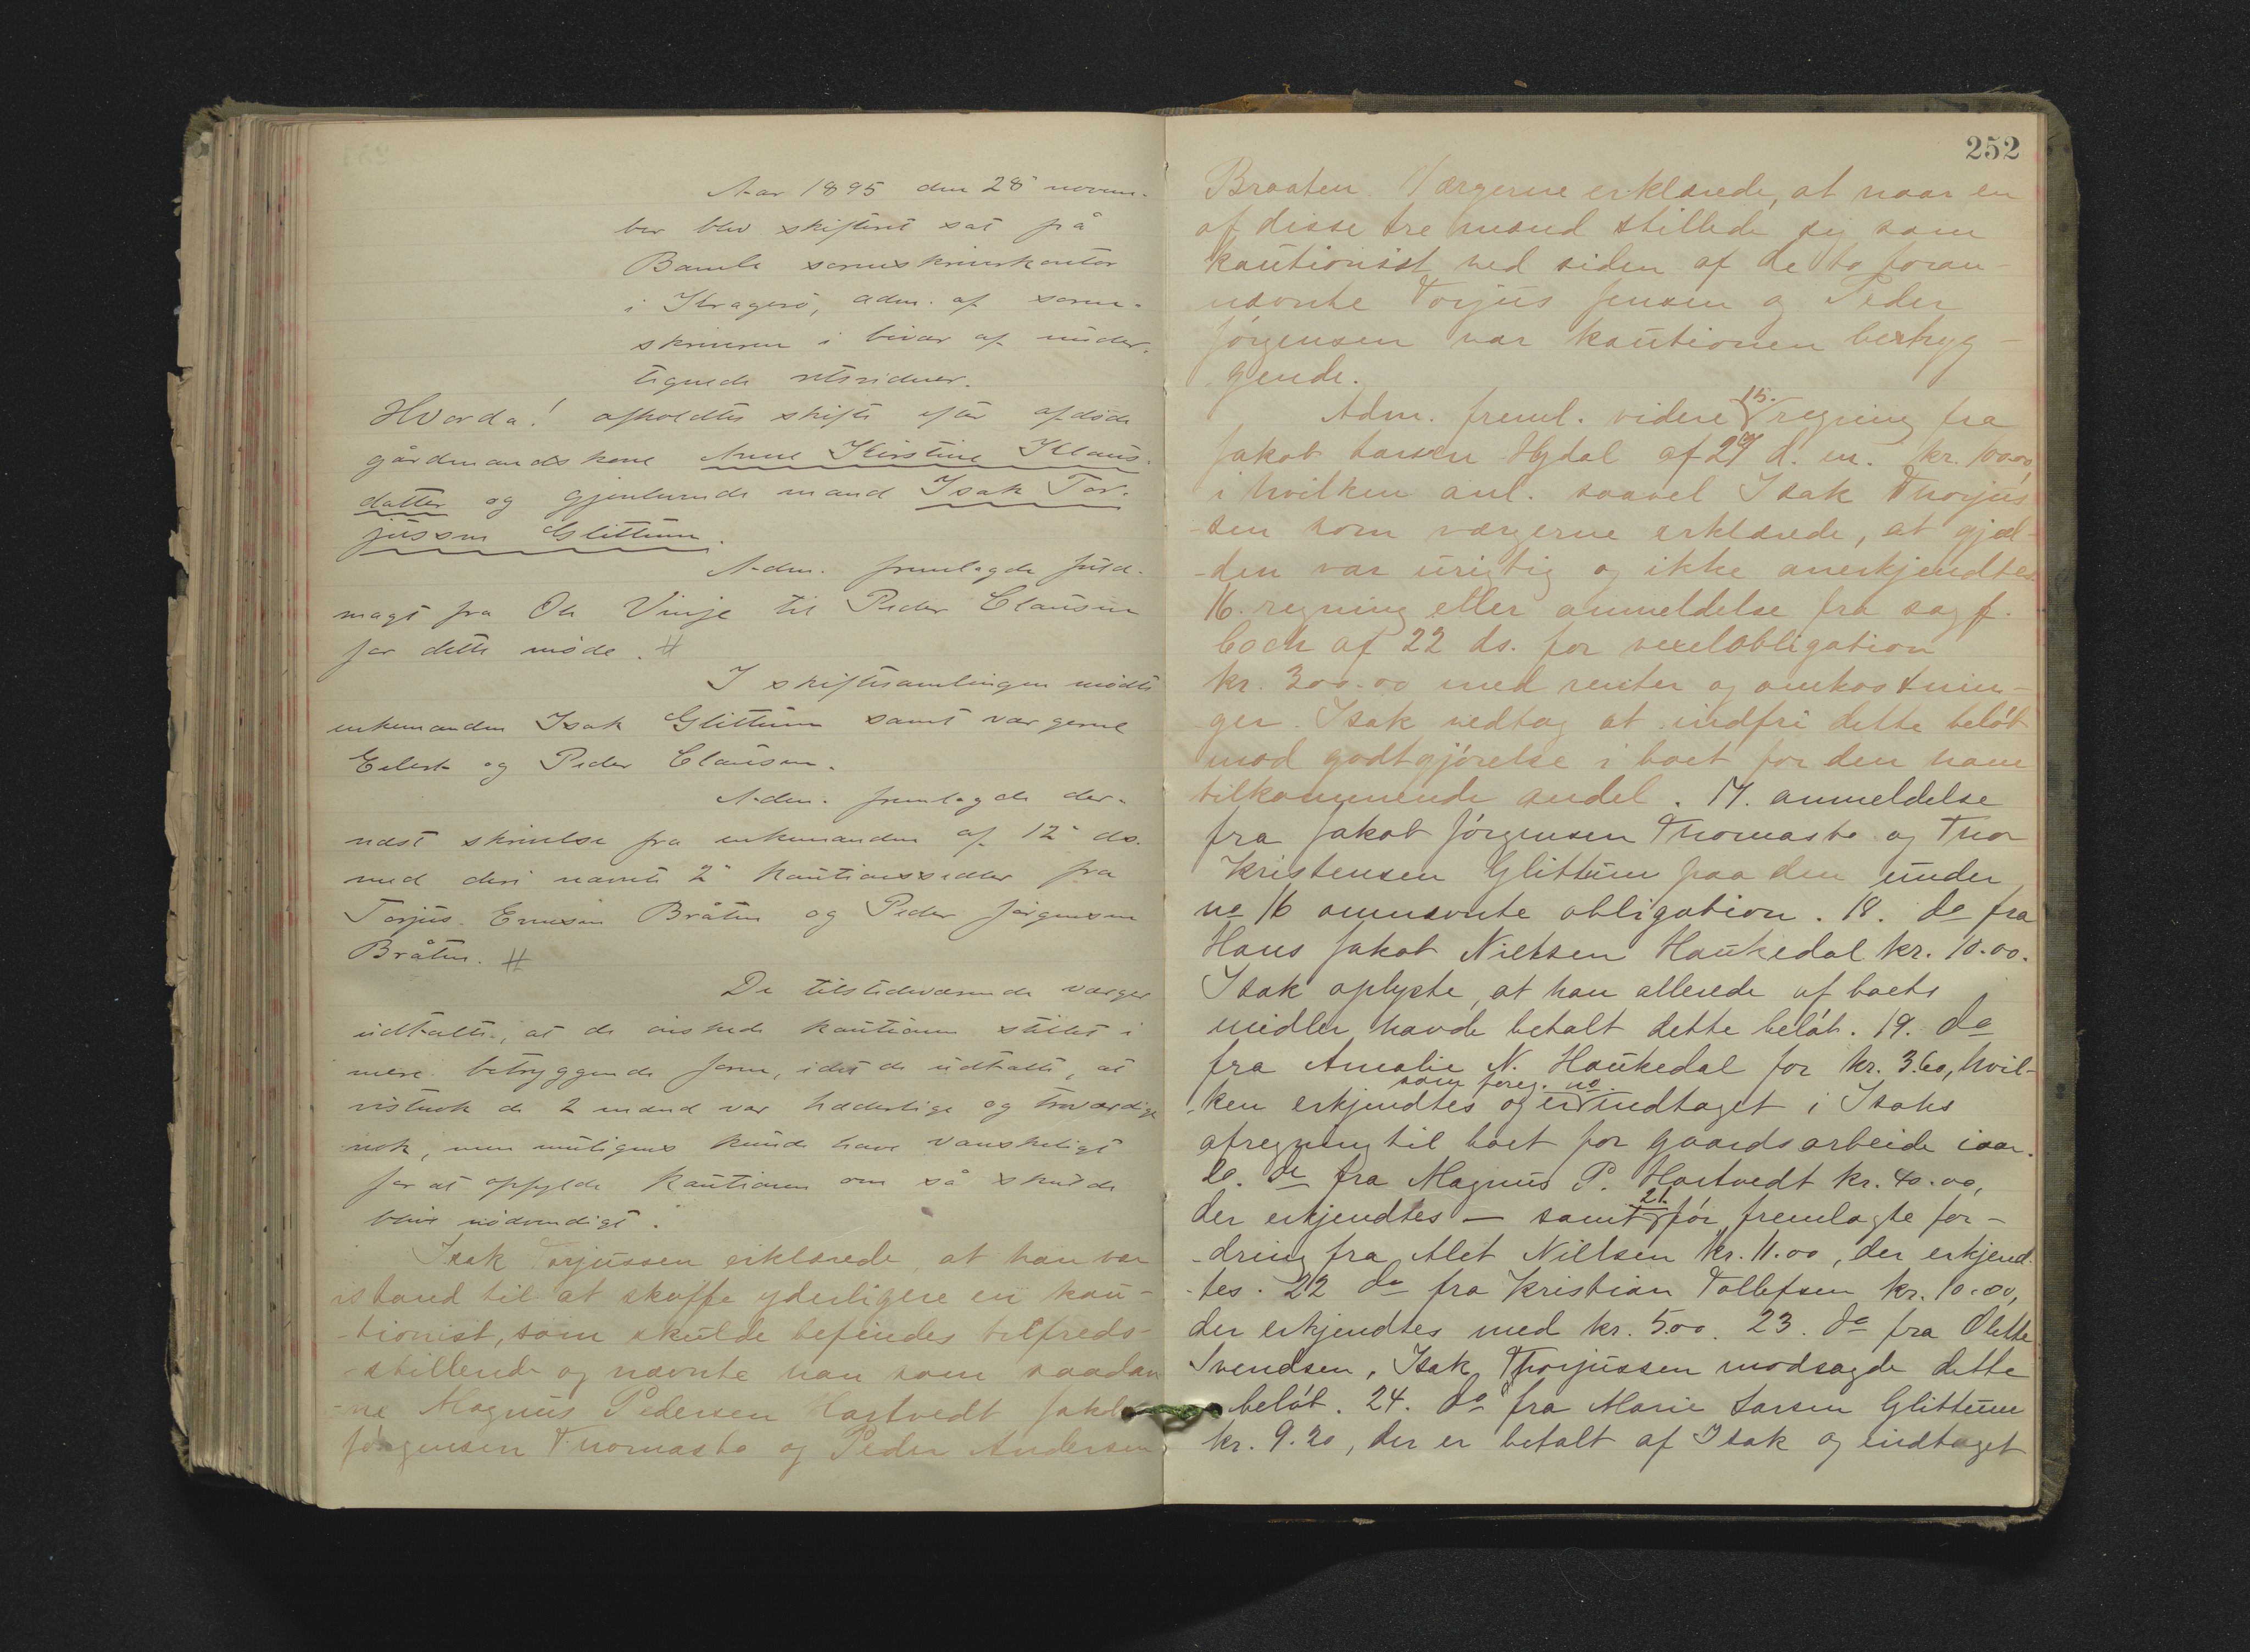 Aar 1895 den 28' novem-
ber blev skifteret sat på
Bamle sorenskriverkontor
i Kragerö, adm. af soren-
skriveren i bivær af under-
tegnede retsvidner.
Hvorda! afholdtes skifte efter afdøde
gårdmandskone Anne Kirstine Klaus-
datter og gjenlevende mand Isak Tor-
jussen Glittum.
Adm. fremlagde fuld-
magt fra Ole Vinje til Peder Clausen
for dette møde. #
I skiftesamlingen mødte
enkemanden Isak Glittum samt værgerne
Eilert og Peder Clausen.
Adm. fremlagde der-
næst skrivelse fra enkemanden af 12' ds.
med deri nævnte 2' kautionssedler fra
Torjus Bråten og Peder Jörgensen
Bråten. #
De tilstedeværende værger
udtalte, at de önskede kautionen stillet i
mere betryggende form, idet de udtalte, at
vistnok de 2 mænd var hæderlige og troværdige
nok, men muligens kunde have vanskeligt
for at opfylde kautionen om så skulde
blive nödvendigt.
Isak Torjussen erklærede, at han var
istand til at skaffe yderligere en kau-
-tionist, som skulde befindes tilfreds-
-stillende og nævnte han som saadan
-ne Magnus Pedersen Hartvedt Jakob
Jörgensen Thomasbo og Peder Andersen
252
Braaten. Værgerne erklærede, at naar en
af disse tre mænd stillede sig som
kautionist ved siden af de to foran-
nævnte Torjus Jensen og Peder
Jörgensen var kautionen betryg-
gende.
Adm. freml. videre 15. regning fra
Jakob Larsen Hydal af 27 d. m. kr. 100.00,
i hvilken anl. saavel Isak Thorjus-
-sen som værgerne erklærede, at gjæl-
-den var urigtig og ikke anerkjendtes
16. regning eller anmeldelse fra sagf.
Coch af 22 ds. for vexelobligation
kr. 300.00 med renter og omkostnin-
ger. Isak vedtog at indfri dette beløb
mod godtgjörelse i boet for den ham
tilkommende andel. 17. anmeldelse
fra Jakob Jörgensen Thomasbo og Thor
Kristensen Glittum paa den under
no 16 omnævnte obligation. 18. do fra
Hans Jakob Nielsen Haukedal kr. 10.00.
Isak oplyste, at han allerede af boets
midler havde betalt dette beløb. 19. do
fra Amalie N. Haukedal for kr. 3.60, hvil-
-ken erkjendtes og er som foreg. no. indtaget i Isaks
afregning til boet for gaardsarbeide iaar.
20. do fra Magnus P. Hartvedt kr. 40.00,
der erkjendtes — samt 21. för fremlagte for-
-dring fra Alet Nielsen kr. 11.00, der erkjend-
-tes. 22 do fra Kristian Tollefsen kr. 10.00,
der erkjendtes med kr. 5.00. 23. do fra Olette
Svendsen, Isak Thorjussen modsagde dette
beløb. 24. do fra Marie Larsen Glittum
kr. 9.20, der er betalt af Isak og indtaget